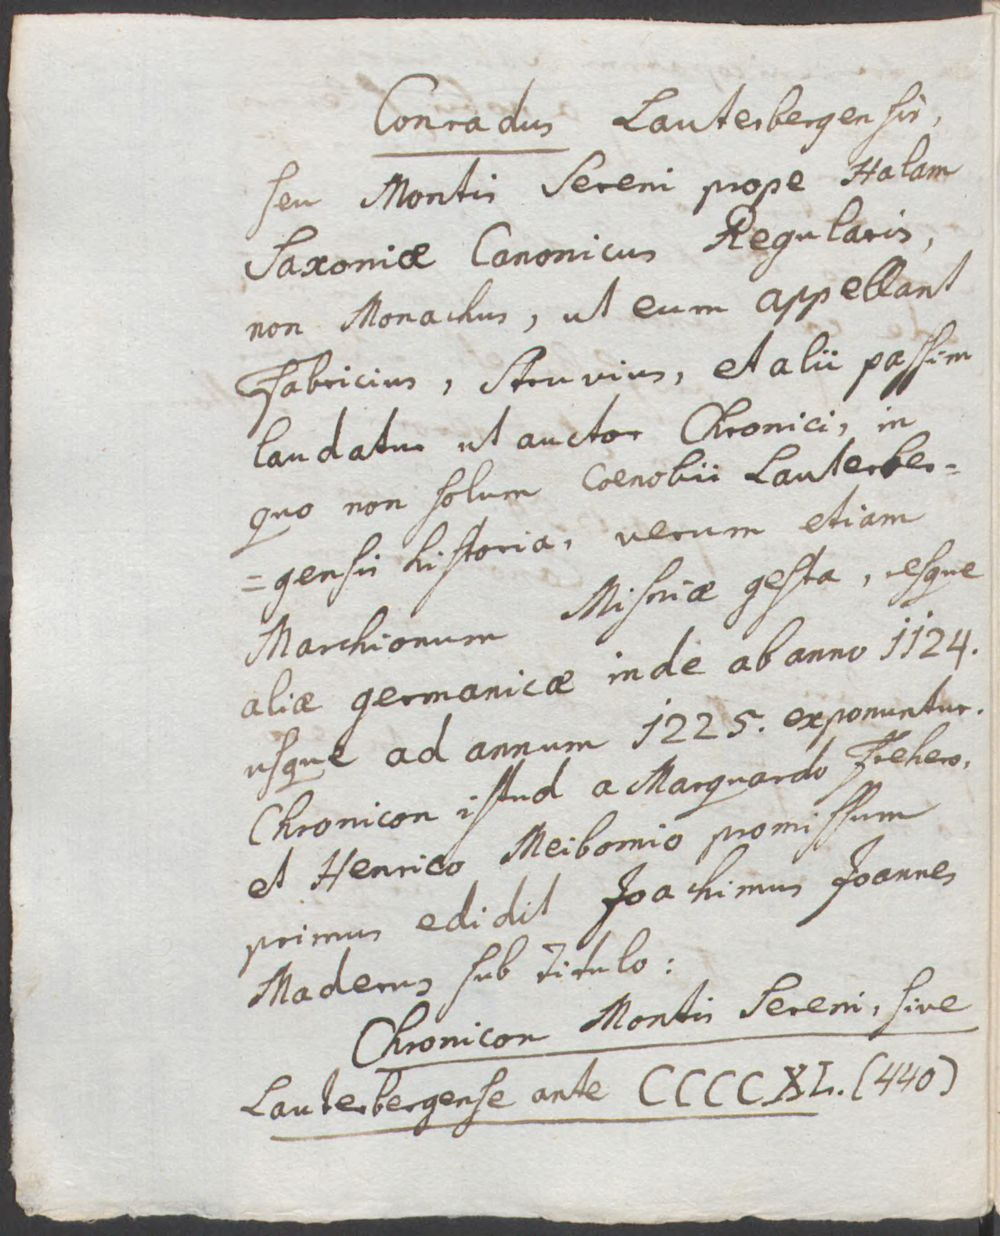 Conradus Lauterbergensis,
seu Montis Sereni prope Halam
Saxoniæ Canonicus Regularis,
non Monachus, ut eum appellant
Fabricius, Struvius, et alii passim
laudatur ut auctor Chronici, in
quo non solum Coenobii Lauterber=
=gensis historia, verum etiam
Marchionum Misniæ gesta, resque
aliæ germanicæ inde ab anno 1124.
usque ad annum 1225. exponuntur.
Chronicon istud a Marquardo Frehero,
et Henrico Meibomio promissum
primus edidit Joachimus Joannes
Maderus sub titulo:
Chronicon Montis Sereni, sive
Lauterbergense ante CCCCXL. (440)